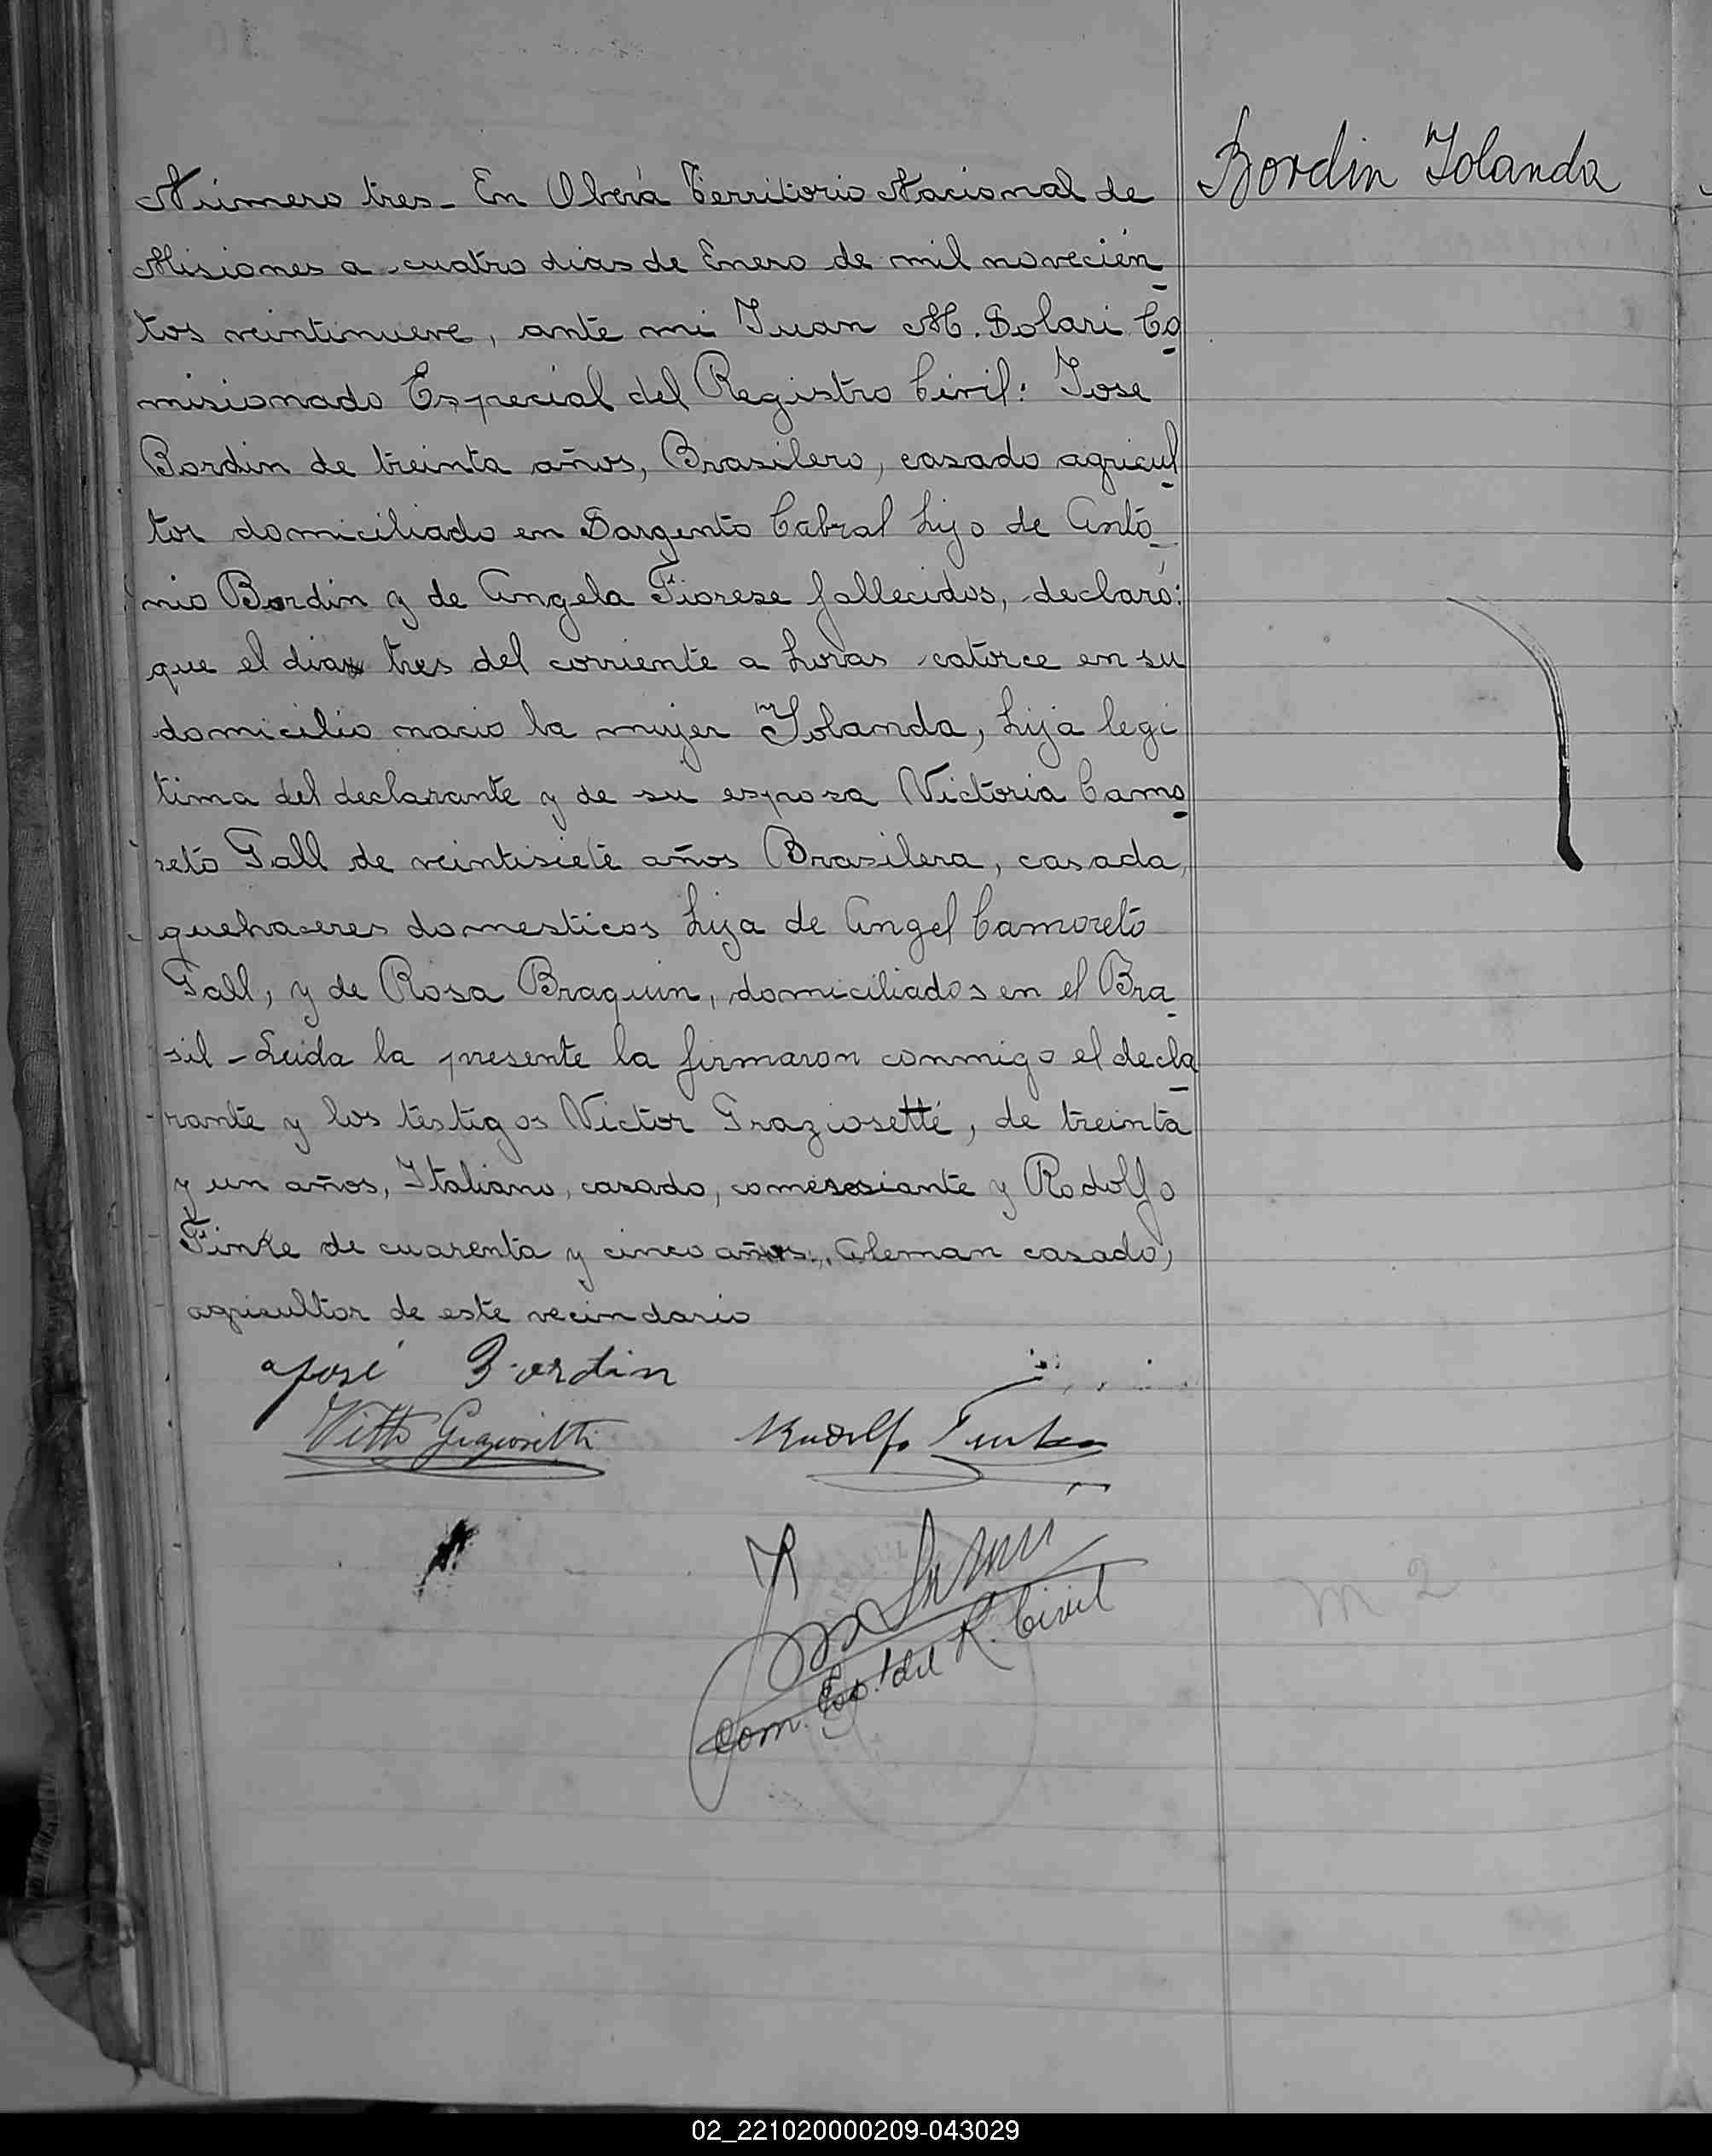 Bordin Iolanda
Número tres - En Oberá Territorio Nacional de
Misiones a cuatro dias de Enero de mil novecien
tos veintinueve, ante mi Juan M. Solari Co
misionado Especial del Registro Civil: Jose
Bordin de treinta años, Brasilero, casado agricul
tor domiciliado en Sargento Cabral hijo de Anto
nio Bordin y de Angela Fiorese fallecidos, declaró:
que el dia tres del corriente a horas catorce en su
domicilio nacio la mujer Iolanda, hija legi
tima del declarante y de su esposa Victoria Camo
reto Gall de veintisiete años Brasilera, casada,
quehaceres domesticos hija de Angel Camoreto
Gall, y de Rosa Braquin, domiciliados en el Bra
sil - Leida la presente la firmaron conmigo el decla
rante y los testigos Victor Graziosetté, de treinta
y un años, Italiano, casado, comersiante y Rodolfo
Finke de cuarenta y cinco años, Aleman casado,
agricultor de este vecindario
José Bordin
Vitto Graziosetti
Rudolfo Finke
Com. Esp. del R. Civil
m 2
02_221020000209-043029